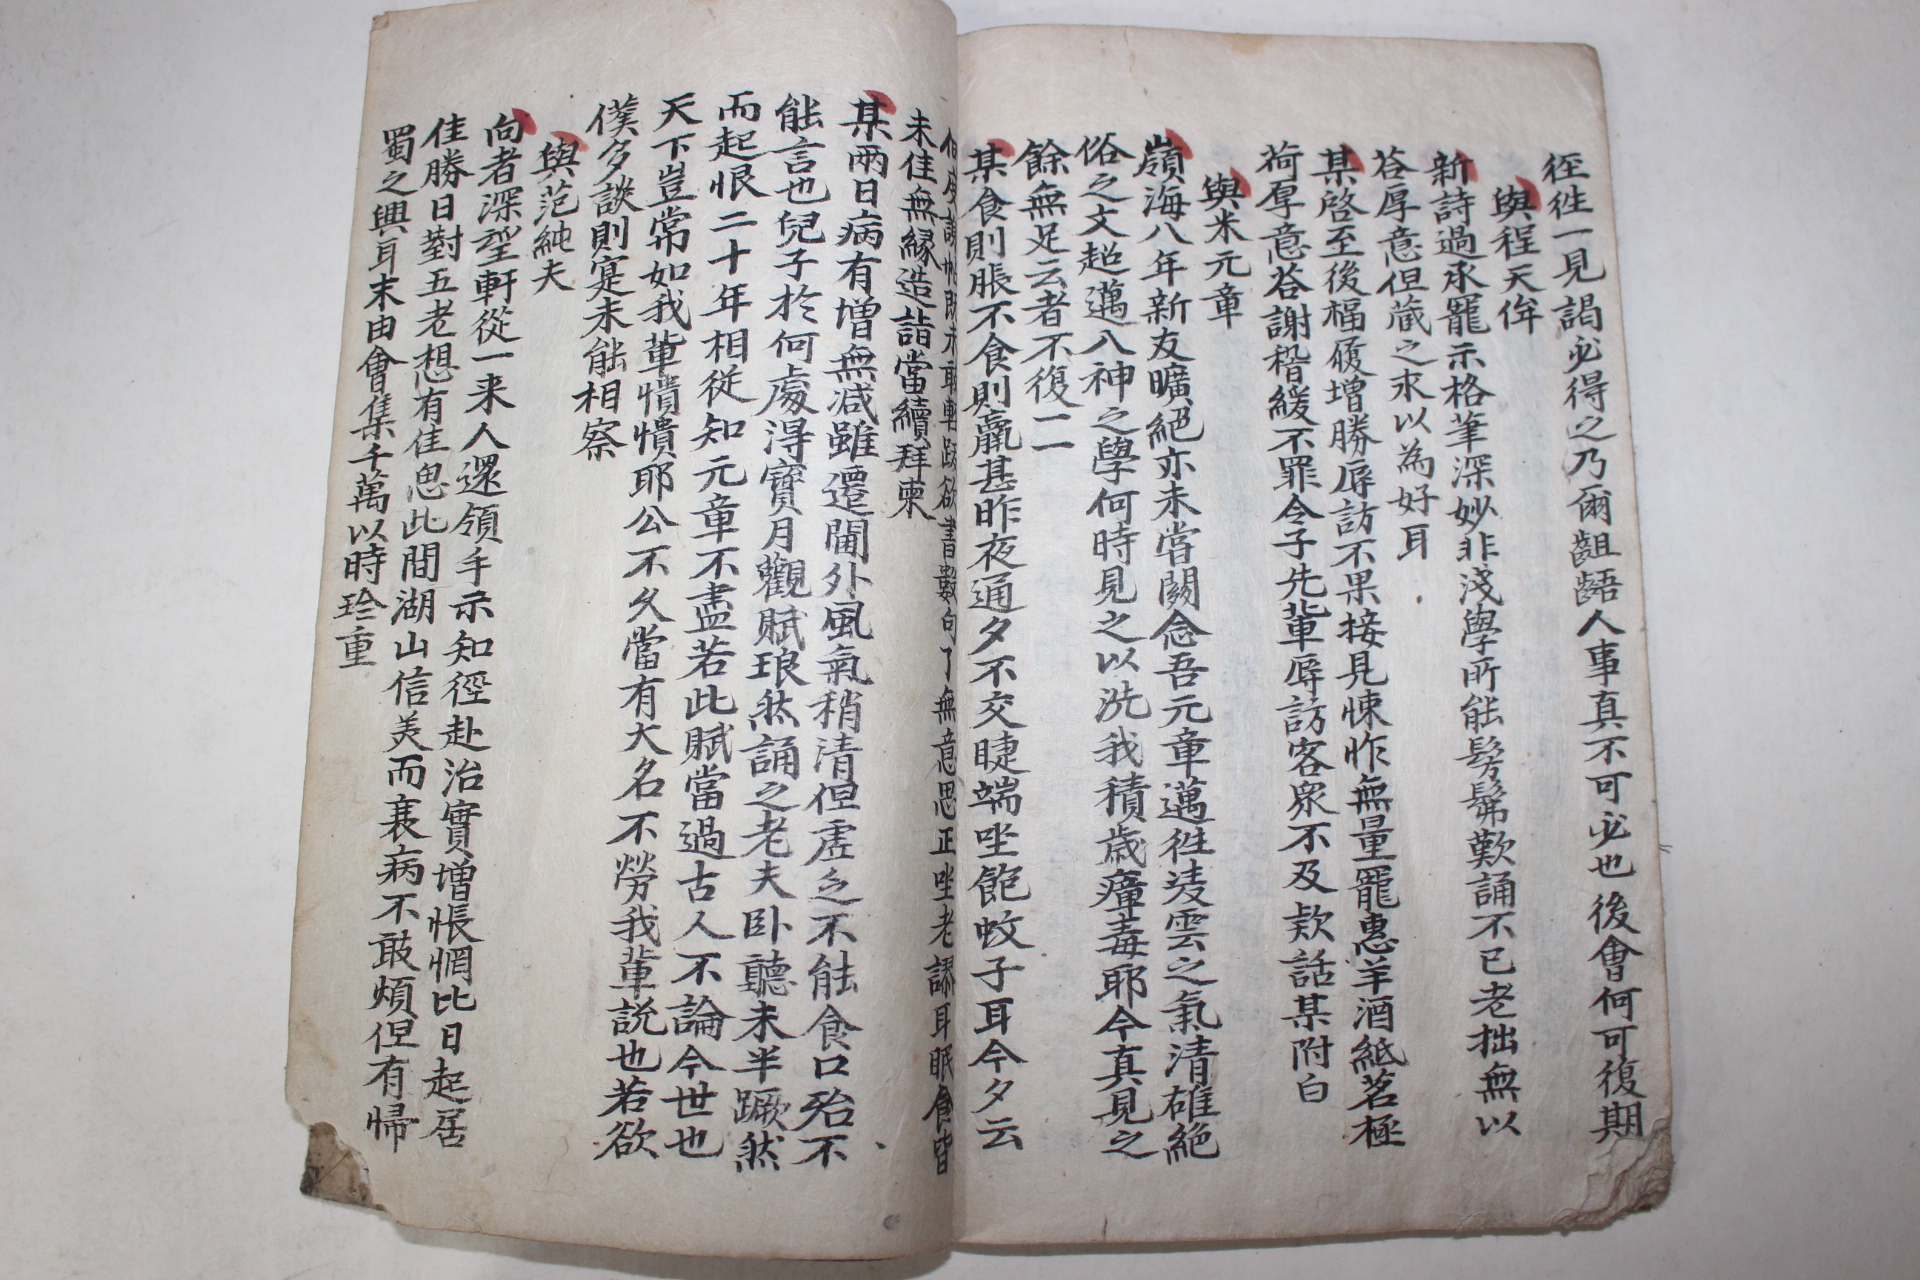 徃徃一見謁必得之乃爾齟齬人事真不可必也後會何可復期
與程天侔
新詩過承寵示格筆深妙非淺學所能髣髴歎誦不已老拙無以
荅厚意但藏之永以為好耳
某啓至後福履增勝辱訪不果接見悚怍無量寵惠羊酒紙茗極
荷厚意荅謝稽緩不罪令子先輩辱訪客衆不及欵話某附白
與米元章
嶺海八年新友曠絕亦未嘗闕念吾元章邁徃凌雲之氣清雄絕
俗之文超邁入神之學何時見之以洗我積歲瘴毒耶今真見之
餘無足云者不復一一
某食則脹不食則羸甚昨夜通夕不交睫端坐飽蚊子耳今夕云
何度 既未敢輕跋欲書數句了無意思正坐老謬耳眠食皆
未佳無緣造詣當續拜柬
某兩日病有增無减雖遷閘外風氣稍清但虛乏不能食口殆不
能言也兒子於何處得寶月觀賦琅然誦之老夫卧聽未半蹶然
而起恨二十年相從知元章不盡若此賦當過古人不論今世也
天下豈常如我輩憒憒耶公不久當有大名不勞我輩說也若欲
僕多談則寔未能相察
與范純夫
向者深望軒從一来人還領手示知徑赴治實增悵惘比日起居
佳勝日對五老想有佳思此間湖山信美而衰病不敢煩但有帰
蜀之興耳末由會集千萬以時珍重